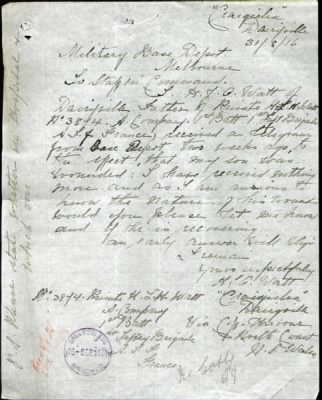 "Craigielea"
Dairyville
31/8/16
Military Base Depot
Melbourne
To Staff Command.
I H. J. C. Watt of
Dairyville Father of Private H. L. H. Watt
No 3894. A Company 1st Batt 1st Infty Brigade
A.I.F. France, received an telegram
from Base Depot two weeks ago, to
the effect that my son was
wounded: I have received nothing
more and as I am anxious to
know the nature of his wounds
would you please let me know
and if he is recovering
an early answer will oblige
I remain
Yours respectfully
H. C. Watt
No. 3894 Private H. L. H. Watt
Craigielea
A Company
Dairyville
1st Batt
Via Coffs Harbour
1st Infty Brigade
North Coast
A. I. F.
N. S. Wales
France
P.S. Please state whether in hospital &
which one